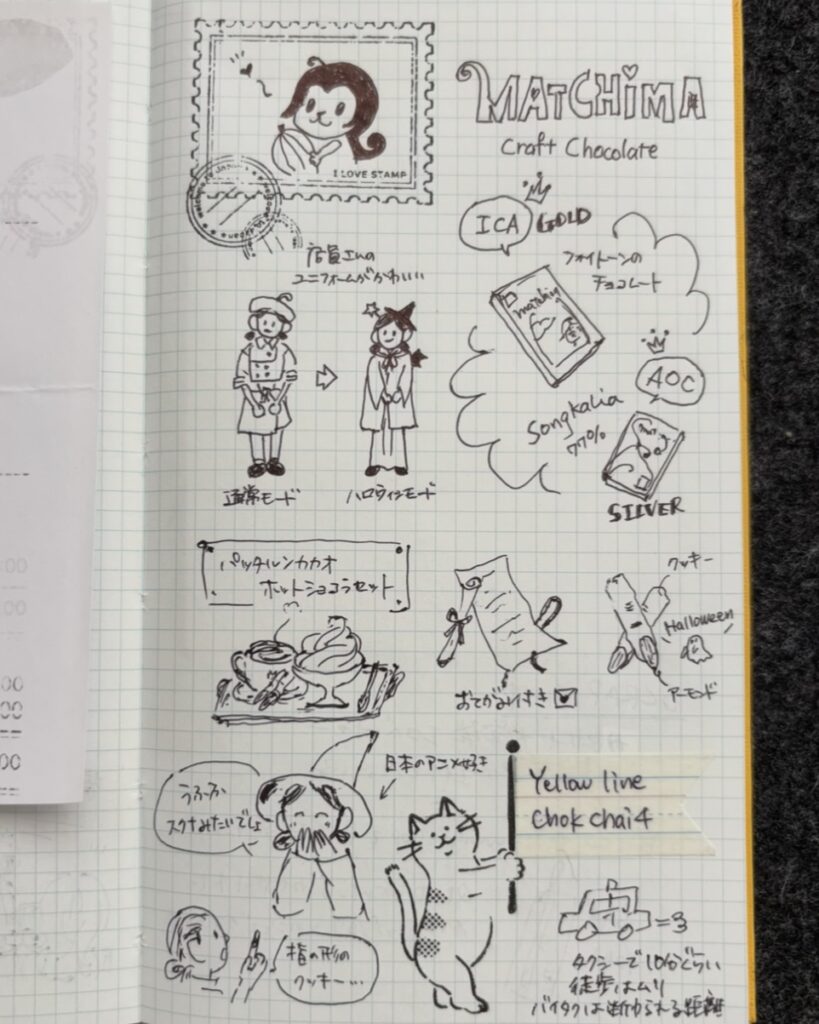 I LOVE STAMP
MATCHIMA
Craft Chocolate
ICA GOLD
フォイトーンの
チョコレート
店員さんの
ユニフォームがかわいい
matchima
AOC
Songkalia
77%
SILVER
通常モード
ハロウィンモード
パッタルンカカオ
ホットショコラセット
おてがみ付き
クッキー
Halloween
アーモンド
日本のアニメ好き
うふふ
スクナみたいでしょ
Yellow line
Chok chai 4
指の形の
クッキー…
タクシーで10分ぐらい
徒歩はムリ
バイタクは断られる距離